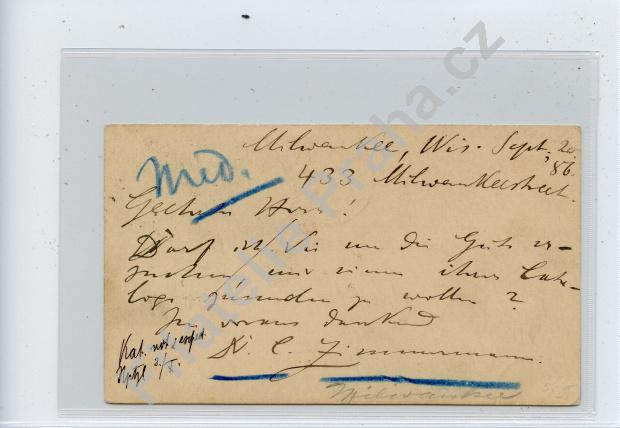 Milwaukee, Wis. Sept. 20
'86.
Med.
433 Milwaukeestreet.
Geehrter Herr!
Darf ich Sie um die Güte er-
suchen mir einen ihrer Cata-
loge zusenden zu wollen?
Im voraus dankend
Dr. C. Zimmermann.
Kat. notiert
2/X.
Milwaukee
Filatelie Praha.cz